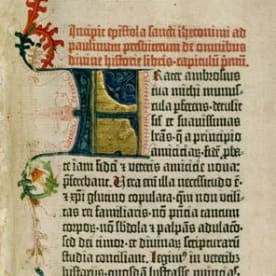 Incipit epistola sancti iheronimi ad
paulinum presbiterum de omnibus
divine historie libris. capitulū pmū.
Frater ambrosius
tua michi munus-
cula pferens. detulit
sił et suavissimas
lrās. q̄ a principio
amiciciar̄. fidē pba-
te iam fidei et veteris amicicie nova
pferebant. Vera enī illa necessitudo ē.
et xpi glutino copulata. qm non utili-
tas rei familiaris. nō pncia tantum
corporū. nō sbdola et palpās adulaco.
sed dei timor. et divinarū scripturarū
studia conciliant. legimꝰ in veteribꝰ
historiis. quosdā lustrasse provīcias.